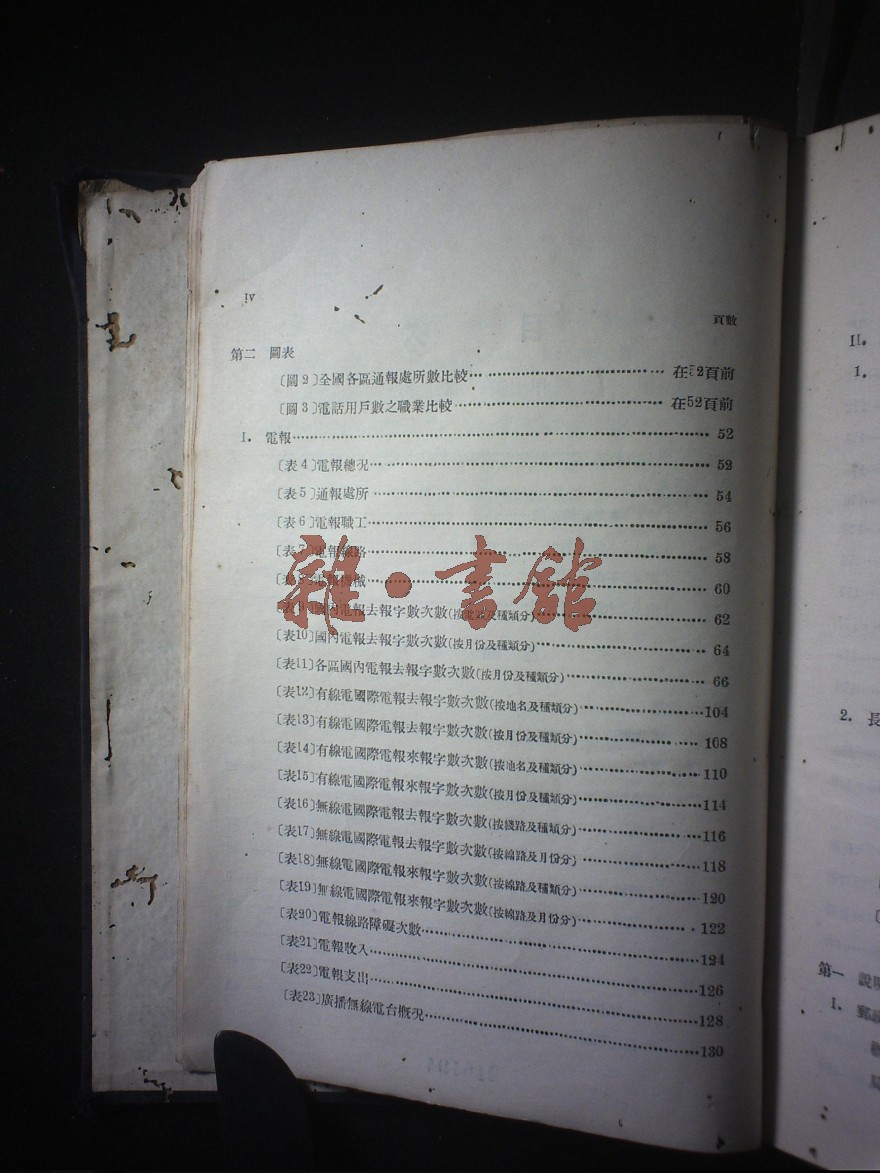 iv
頁數
第二 圖表
〔圖2〕全國各區通報處所數比較 在52頁前
〔圖3〕電話用戶數之職業比較 在52頁前
I. 電報 52
〔表4〕電報總況 52
〔表5〕通報處所 54
〔表6〕電報職工 56
〔表7〕電報線路 58
〔表8〕電報機械 60
〔表9〕國內電報去報字數次數(按 及種類分) 62
〔表10〕國內電報去報字數次數(按月份及種類分) 64
〔表11〕各區國內電報去報字數次數(按月份及種類分) 66
〔表12〕有線電國際電報去報字數次數(按地名及種類分) 104
〔表13〕有線電國際電報去報字數次數(按月份及種類分) 108
〔表14〕有線電國際電報來報字數次數(按地名及種類分) 110
〔表15〕有線電國際電報來報字數次數(按月份及種類分) 114
〔表16〕無線電國際電報去報字數次數(按綫路及種類分) 116
〔表17〕無線電國際電報去報字數次數(按線路及月份分) 118
〔表18〕無線電國際電報來報字數次數(按線路及種類分) 120
〔表19〕無線電國際電報來報字數次數(按線路及月份分) 122
〔表20〕電報線路障礙次數 124
〔表21〕電報收入 126
〔表22〕電報支出 128
〔表23〕廣播無線電台概況 130
雜·書館
II.
1.
2. 長
第一 說
I. 郵